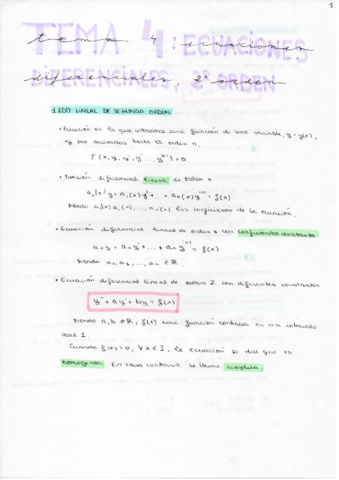 1
TEMA 4: ECUACIONES
DIFERENCIALES, 2º ORDEN
1. EDO LINEAL DE SEGUNDO ORDEN
• Ecuación en la que interviene una función de una variable, y = y(x),
y sus derivadas hasta orden n.
F(x, y, y', y'', ... y⁽ⁿ⁾) = 0
• Función diferencial lineal de orden n
a₀(x)y + a₁(x)y' + ... + aₙ(x)y⁽ⁿ⁾ = f(x)
siendo los coeficientes de la ecuación.
• Ecuación diferencial lineal de orden n con coeficientes constantes
a₀y + a₁y' + ... + aₙy⁽ⁿ⁾ = f(x)
siendo a₀, a₁, ..., aₙ ∈ ℝ
• Ecuación diferencial lineal de orden 2 con constantes
y'' + ay' + by = f(x)
siendo a, b ∈ ℝ, f(x) una función continua en un intervalo
real I.
Cuando f(x) = 0, ∀x ∈ I, la ecuación se dice que es
homogénea. En caso contrario se llama completa.